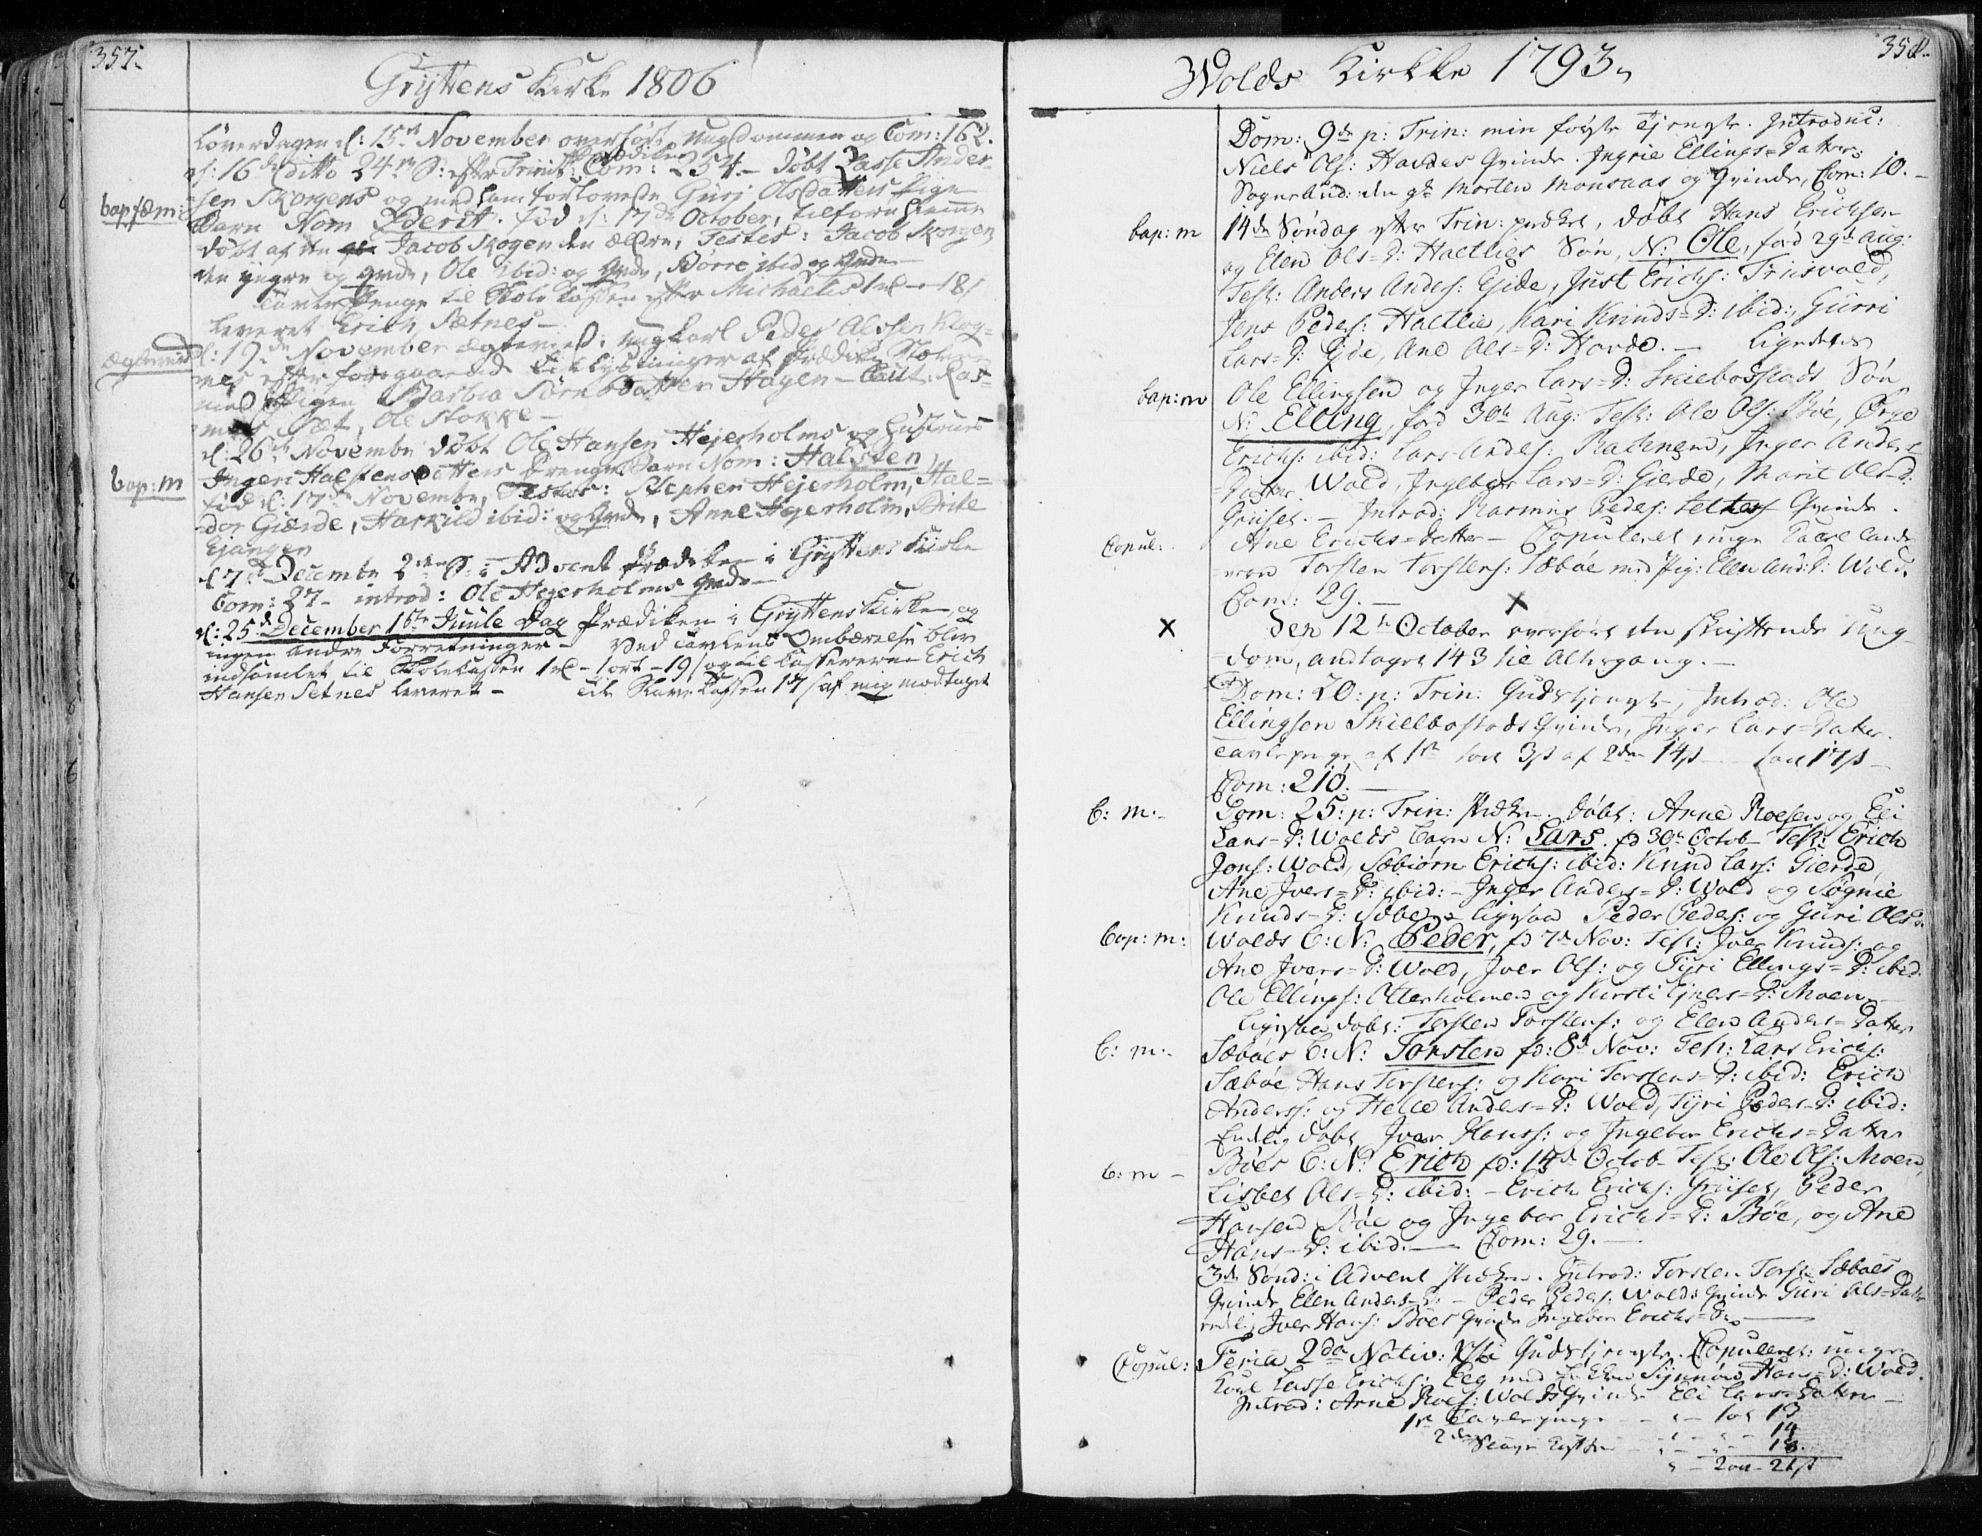 357.
Gryttens Kirke 1806
Løverdagen d: 15de November overhørt Ungdommen og Com: 162.
d: 16de ditto 24de S: efter Trinit: Prædiken Com: 234 – døbt Lasse Ander-
sen Skogens og med ham forlovede Guri Olsdatters Pige
bap: fæm:
Barn Nom Berit. fød d: 17de October, tilforn hiemme
døbt af den Jacob Skogen den ældre, Testes: Jacob Skogen
den yngre og qvde, Ole ibid: og qvde, Børre ibid og qvde
Tavle Penge til Skole Cassen efter Michaelis 1 rd – 18 s
leveret Erich Sætnes –
ægtevied
d: 19de November ægteviet: ungkarl Peder Alssen Klog-
nes efter foregaaende Tillysninger af Prædike Stolen
med Pigen Barbra Sørensdatter Hagen – Caut: Ras-
mus Sæt, Ole Stokke –
d: 26de Novembr døbt Ole Hansen Hejerholms og Hustrues
bap: m
Ingeri Halstensdatters Drenge Barn Nom: Halsten
fød d: 17de Novembr, Testes: Stephen Hejerholm, Hal-
dor Gierde, Harkild ibid: og qvde, Anne Hejerholm, Brite
Ejangen
d 7de Decembr 2den S: i Advent Prædiken i Gryttens Kirke
Com: 27 – introd: Ole Hejerholms qvde –
d: 25de December 1ste Juule Dag Prædiken i Gryttens Kirke, og
ingen andre Forretninger – Ved Tavlens Ombærelse blev
indsamlet til Skolekassen 1 rd – 1 ort – 19 s og til Cassereren Erich
Hansen Setnes leveret – til Slave Cassen 17 s af mig modtaget
358.
Wolds Kirkke 1793
Dom: 9de p: Trin: min første Tjeneste. Introduc:
Niels Ols: Haudes Qvinde Ingrie Ellings=Datter;
Sognebud: den g: Morten Monsaas og Qvinde, Com: 10. –
bap: m
14de Søndag efter Trin: prædket, døbt Hans Erichsen
og Elen Ols=D: Haltlies Søn, N: Ole, fød 29de Aug:
Test: Anders Anders: Gide, Just Erichs: Trisvold,
Jens Peders: Haltlie, Kari Knuds=D: ibid:, Gurri
Lars=D: Gjde, Ane Ols=D: Hovde. – Ligeledes
bap: m
Ole Ellingsen og Inger Lars=D: Skiebostads Søn
N: Elling, fød 30te Aug: Test: Ole Ols: Bøe, Ørge
Erichs: ibid: Lars Anders: Kadenend, Inger Anders
=Datter Wold, Ingebor Lars=D: Gierde, Marit Ols=D:
Griset. – Introd: Rasmus Peders: Qvinde
Copul:
Ane Erichs=datter – Copuleret unge Karl Lands
Torsten Torstens: Sæbøe med Pig: Elen And: D: Wold.
Com: 29. – X
X
Den 12te October overhørt den skriftende Ung-
dom, andtaget 143 til Altergang. –
Dom: 20: p: Trin: Gudstjeneste, Introd: Ole
Ellingsen Skielbostads Qvinde, Inger Lars=Datter.
Tavlepenge af 1ste 3 s af 2den 14 s – 17 s –
Com: 210. –
b: m: –
Dom: 25: p: Trin: Prædken. Døbt: Arne Roesen og Eli
Lars=D: Wolds Barn N: Lars. fd 30te Octob – Test: Erich
Jons: Wold, Sæbiørn Erichs: ibid: Knud Lars: Gierde
Ane Ivers=D: ibid: – Inger Anders=D: Wold og Sygnie
Knuds=D: Sæbøe – ligesaa Peder Peders: og Guri Ols D:
bap: m:
Wolds b: N: Peder, fd 7de Nov: Test: Iver Knuds: og
Ane Ivers=D: Wold, Iver Ols: og Tyri Ellings=D: ibid.
Ole Ellings: Otterholmen og Kirsti Ejners=D: Moen,
ligesaa døbt: Torsten Torstens: og Elen Anders=datter
b: m: –
Sæbøes b: N: Torsten fd: 8de Nov: Test: Lars Erichs:
Sæbøe Hans Torstens: og Kari Torstens=D: ibid: Erich
Anderss: og Helle Anders=D: Wold, Tyri Peders=D: ibid:
Endelig døbt Iver Hanss: og Ingebor Erichs=Datter
b: m –
Bøes b: N: Erich fd: 14de Octob – Test: Ole Ols: Moen,
Lisbet Ols=D: ibid: – Erich Erichs: Griset, Peder
Hansen Bøe og Ingebor Erichs=D: Bøe, og Ane
Hans=D: ibid: — Com: 29. –
3de Sønd: i Advent Prædken. Introd: Torsten Torst: Sæbøes
Qvinde Elen Anders=D: – Peder Peders: Wolds Qvinde Guri Ols=Datter
endelig Iver Hans: Bøes Qvinde Ingebor Erichs=D: –
Copul:
Feria 2da Nativ: Xsti Gudstjeneste. Copuleret: unge
Karl Lasse Erichs: Elg med Synnøve Hans=D: Wold.
Introd: Arne Roes: Wolds Qvinde Eli Lars=Datter –
1ste Tavlepenge – – " – 13
2den – " – 14
– " – 18
" – 2 ort – 21 s